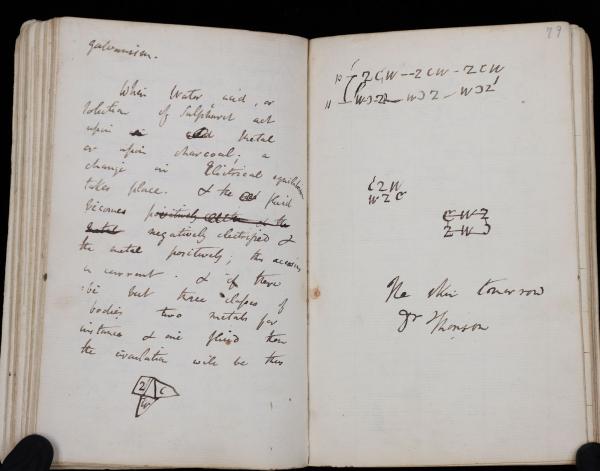 galvanism.
When Water, acid, or
Solution of Sulphuret act
upon a Metal
or upon charcoal; a
change in Electrical equilibrium
takes place. & the fluid
becomes positively
metal negatively electrified &
the metal positively; this
a current. & if there
be but three classes of
bodies two metals for
instance & one fluid then
the circulation will be thus
Z C
W
79
10 Z C W -- Z C W - Z C W
11 W C Z - W C Z - W C Z
C Z W
W Z C
C W Z
Z W C
tomorrow
Dr Thomson